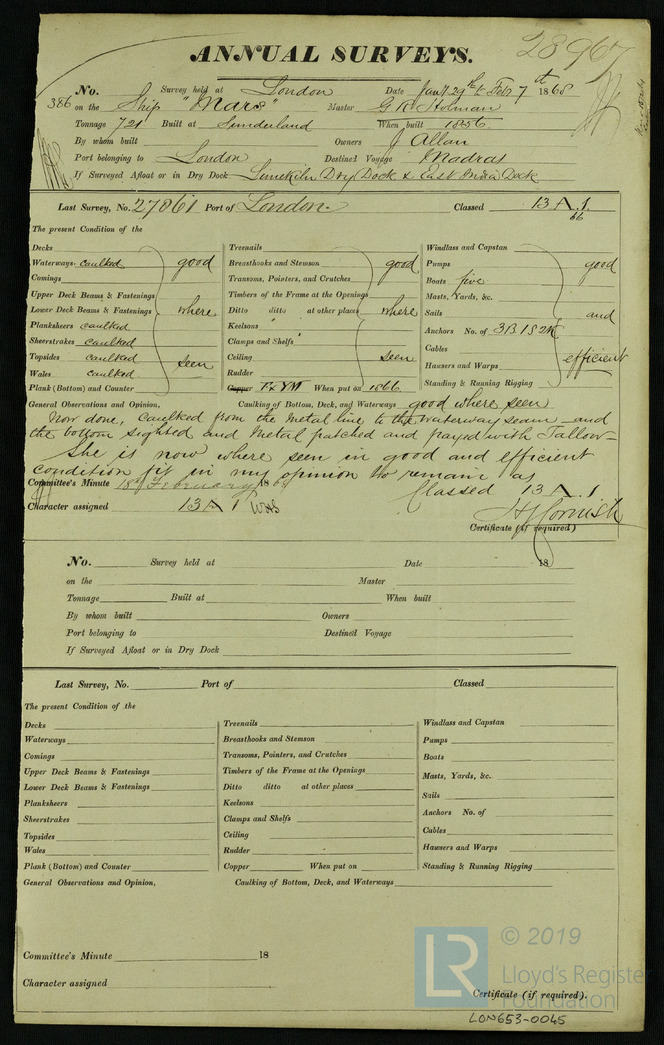 28967
ANNUAL SURVEYS.
No. 386 Survey held at London Date Jany 29th & Feb 7th 1868
on the Ship "Mars" Master G R Holman
Tonnage 721 Built at Sunderland When built 1856
By whom built Owners J Allan
Port belonging to London Destined Voyage Madras
If Surveyed Afloat or in Dry Dock Limekiln Dry Dock & East India Dock
Last Survey, No. 27861 Port of London Classed 13 A.1.
66
The present Condition of the
Decks
Waterways caulked good
Comings
Upper Deck Beams & Fastenings
Lower Deck Beams & Fastenings where
Planksheers caulked
Sheerstrakes caulked
Topsides caulked seen
Wales caulked
Plank (Bottom) and Counter
Treenails
Breasthooks and Stemson good
Transoms, Pointers, and Crutches
Timbers of the Frame at the Openings
Ditto ditto at other places where
Keelsons
Clamps and Shelfs
Ceiling seen
Rudder
Copper F & YM When put on 1866
Windlass and Capstan
Pumps good
Boats five
Masts, Yards, &c.
Sails and
Anchors No. of 3B 1S 2K
Cables
Hausers and Warps efficient
Standing & Running Rigging
General Observations and Opinion, Caulking of Bottom, Deck, and Waterways good where seen
Now done, caulked from the metal line to the waterway seam and
the bottom sighted and metal patched and payed with Tallow
She is now where seen in good and efficient
condition fit in my opinion to remain as
Classed 13 A.1
Committee's Minute 18th February 1868
Character assigned 13 A 1
H J Cornish
Certificate (if required)
No. Survey held at Date 18
on the Master
Tonnage Built at When built
By whom built Owners
Port belonging to Destined Voyage
If Surveyed Afloat or in Dry Dock
Last Survey, No. Port of Classed
The present Condition of the
Decks
Waterways
Comings
Upper Deck Beams & Fastenings
Lower Deck Beams & Fastenings
Planksheers
Sheerstrakes
Topsides
Wales
Plank (Bottom) and Counter
Treenails
Breasthooks and Stemson
Transoms, Pointers, and Crutches
Timbers of the Frame at the Openings
Ditto ditto at other places
Keelsons
Clamps and Shelfs
Ceiling
Rudder
Copper When put on
Windlass and Capstan
Pumps
Boats
Masts, Yards, &c.
Sails
Anchors No. of
Cables
Hausers and Warps
Standing & Running Rigging
General Observations and Opinion, Caulking of Bottom, Deck, and Waterways
Committee's Minute 18
Character assigned
Certificate (if required).
LR © 2019
Lloyd's Register
Foundation
LON653-0045